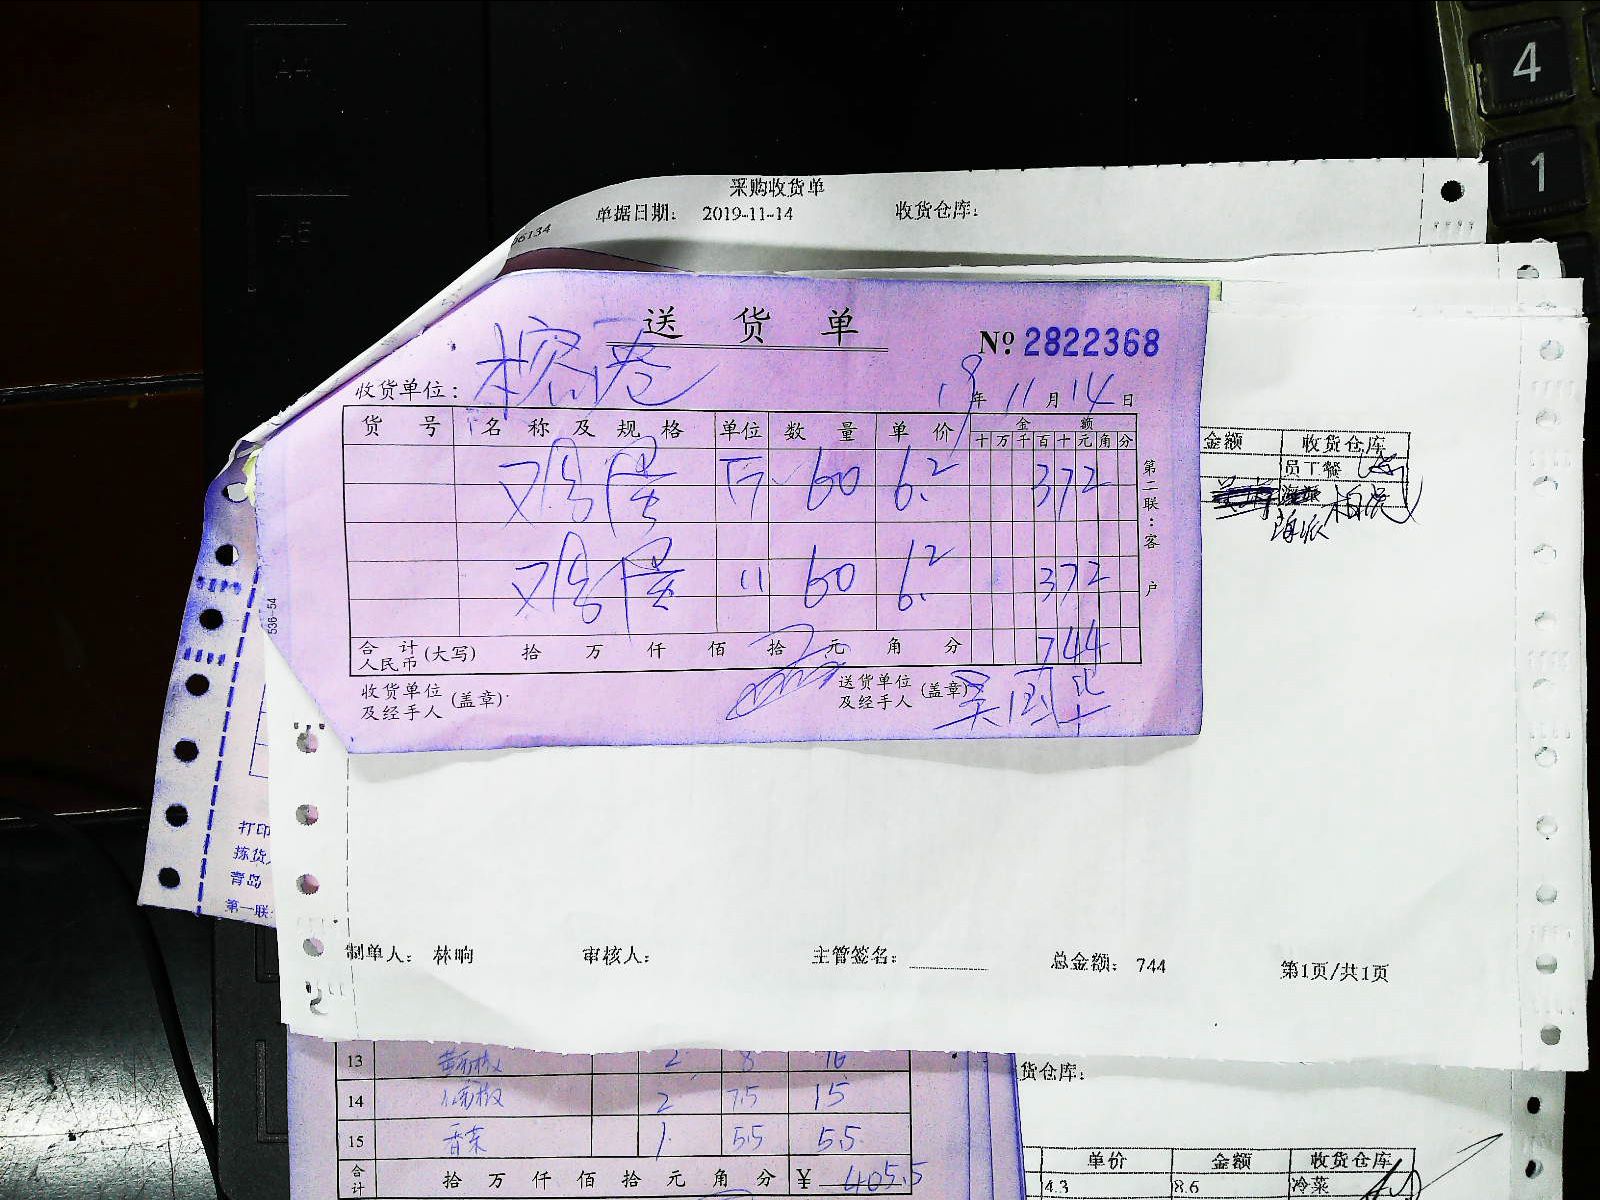 4
1
A4
A5
采购收货单
单据日期： 2019-11-14 收货仓库：
06134
送货单
№ 2822368
收货单位：榕港
19年11月14日
货号 名称及规格 单位 数量 单价 金额
十万千百十元角分
鸡蛋 斤 60 6.2 372
鸡蛋 11 60 6.2 372
合计人民币(大写) 拾 万 仟 佰 拾 元 角 分 744
收货单位及经手人(盖章) 送货单位及经手人(盖章) 吴国华
第二联：客户
536-54
金额 收货仓库
员工餐
打印
拣货
青岛
第一联
制单人： 林响 审核人： 主管签名： 总金额： 744 第1页/共1页
13 2 8 16
14 2 7.5 15
15 香菜 1 5.5 5.5
合计 拾 万 仟 佰 拾 元 角 分 ¥ 405.5
货仓库：
单价 金额 收货仓库
4.3 8.6 冷菜